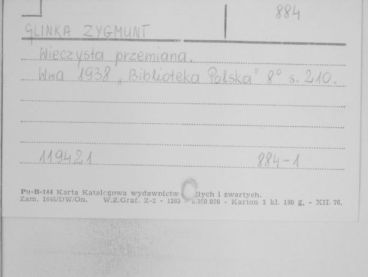 884
GLINKA ZYGMUNT
Wieczysta przemiana.
W-wa 1938 „Biblioteka Polska" 8° s. 210.
119421 884-1
Pu-B-144 Karta Katalogowa wydawnictw tych i zwartych.
Zam. W.Z.Graf. Z-2 - Karton 1 kl. 180 g. - XII. 76.